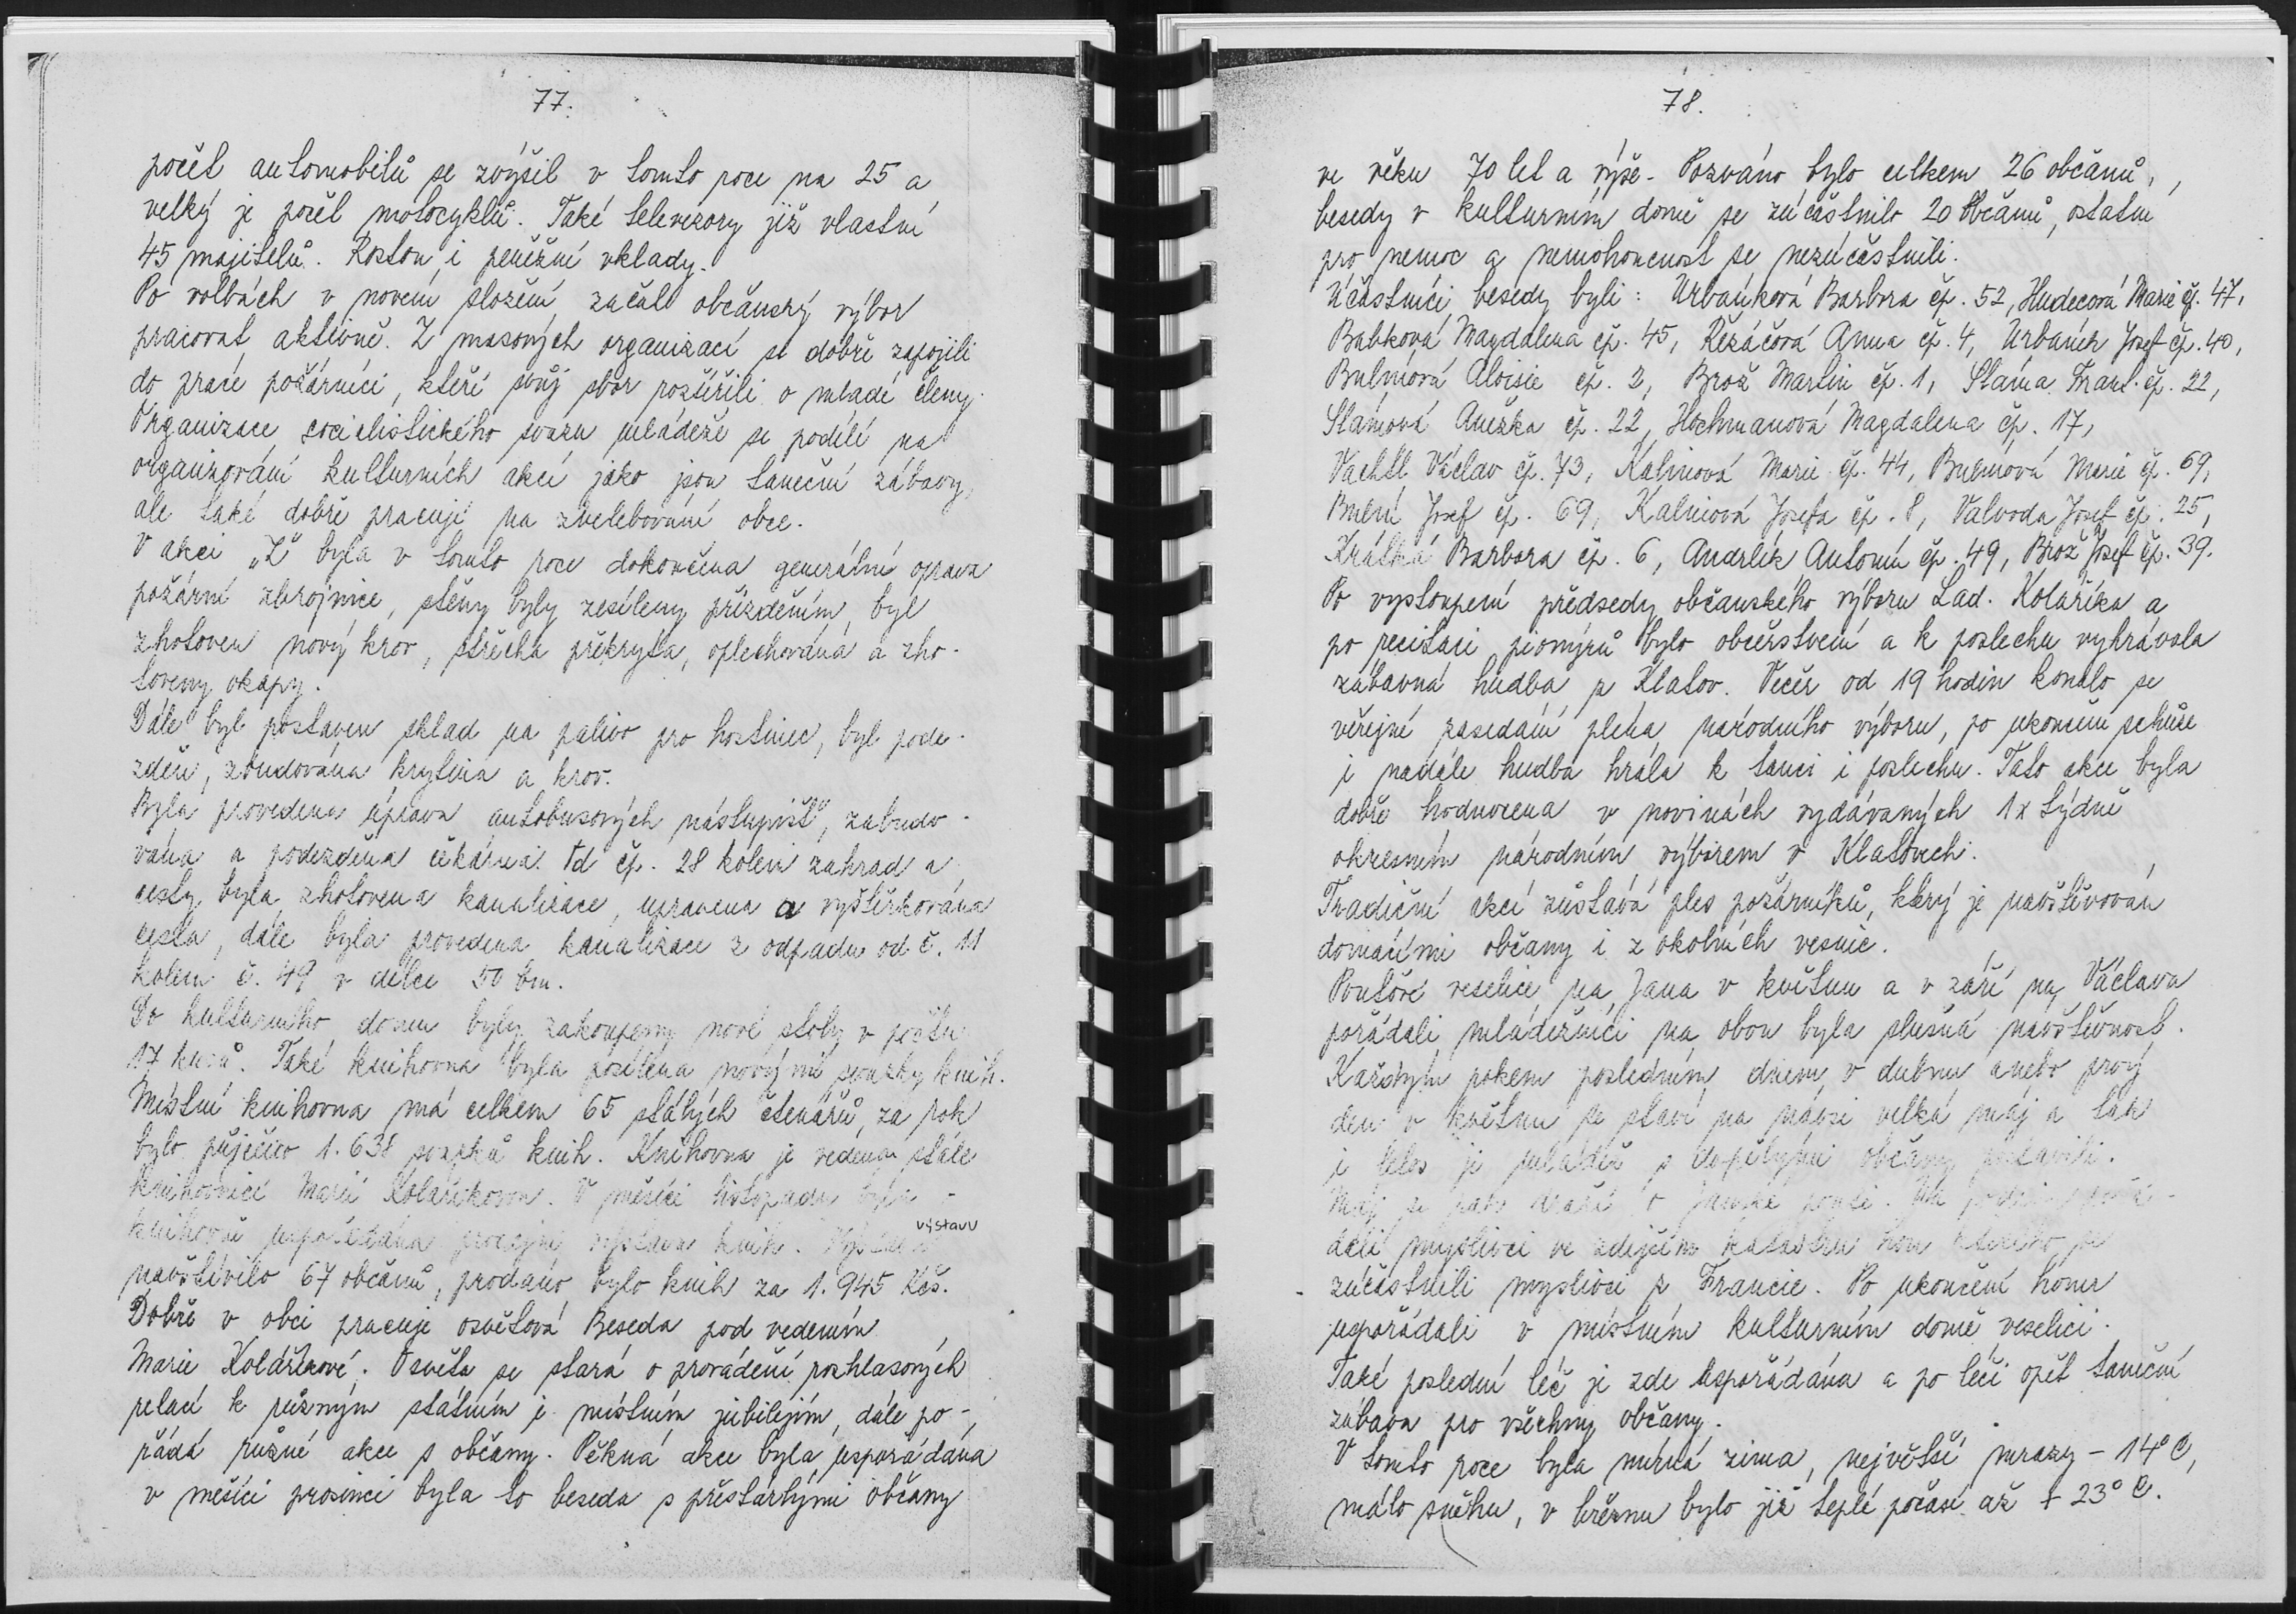 77.
počet automobilů se zvýšil v tomto roce na 25 a
velký je počet motocyklů. Také televizory již vlastní
45 majitelů. Rostou i peněžní vklady.
Po volbách v novém složení začal občanský výbor
pracovat aktivně. Z masových organizací se dobře zapojili
do práce požárníci, kteří svůj sbor rozšířili o mladé členy.
Organizace socialistického svazu mládeže se podílí na
organizování kulturních akcí jako jsou taneční zábavy,
ale také dobře pracují na zvelebování obce.
V akci „Z" byla v tomto roce dokončena generální oprava
požární zbrojnice, stěny byly zesíleny přizděním, byl
zhotoven nový krov, střecha překryta, oplechována a zho-
toveny okapy.
Dále byl postaven sklad na palivo pro hostinec, byl pode-
zděn, zbudována krytina a krov.
Byla provedena úprava autobusových nástupišť, zabudo-
vána a podezděna čekárna. Od čp. 28 kolem zahrad a
cesty byla zhotovena kanalizace, upravena a vyštěrkována
cesta, dále byla provedena kanalizace z odpadu od č. 11
kolem č. 49 v délce 50 bm.
Do kulturního domu byly zakoupeny nové stoly v počtu
17 kusů. Také knihovna byla posílena novými svazky knih.
Místní knihovna má celkem 65 stálých čtenářů, za rok
bylo půjčeno 1.638 svazků knih. Knihovna je vedena stále
knihovnicí Marií Kolaříkovou. V měsíci listopadu byla -
knihovně uspořádána prodejní výstava knih. výstavu
navštívilo 67 občanů, prodáno bylo knih za 1.945 Kčs.
Dobře v obci pracuje osvětová Beseda pod vedením
Marie Kolaříkové. Osvěta se stará o provádění rozhlasových
relací k různým státním i místním jubilejím, dále po-
řádá různé akce s občany. Pěkná akce byla uspořádána
v měsíci prosinci byla to beseda s přestárlými občany
78.
ve věku 70 let a výše. Pozváno bylo celkem 26 občanů,
besedy v kulturním domě se zúčastnilo 20 občanů, ostatní
pro nemoc a nemohoucnost se nezúčastnili.
Účastníci besedy byli: Urbánková Barbora čp. 52, Hudecová Marie čp. 47,
Babková Magdalena čp. 45, Řezáčová Anna čp. 4, Urbánek Josef čp. 40,
Bulínová Aloisie čp. 2, Brož Martin čp. 1, Sláma Frant. čp. 22,
Slámová Anežka čp. 22, Hochmanová Magdalena čp. 17,
Vachtl Václav čp. 73, Kalinová Marie čp. 44, Bulínová Marie čp. 69,
Josef čp. 69, Kalinová Josefa čp. 8, Valvoda Josef čp. 25,
Krátká Barbora čp. 6, Andrlík Antonín čp. 49, Brož Josef čp. 39.
Po vystoupení předsedy občanského výboru Lad. Kolaříka a
po recitaci pionýrů bylo občerstvení a k poslechu vyhrávala
zábavná hudba z Klatov. Večer od 19 hodin konalo se
veřejné zasedání pléna národního výboru, po ukončení schůze
i nadále hudba hrála k tanci i poslechu. Tato akce byla
dobře hodnocena v novinách vydávaných 1x týdně
okresním národním výborem v Klatovech.
Tradiční akcí zůstává ples požárníků, který je navštěvován
domácími občany i z okolních vesnic.
Pouťové veselice na Jana v květnu a v září na Václava
pořádali mládežníci na obou byla slušná návštěvnost.
Každým rokem posledním dnem v dubnu anebo prvý
den v květnu se staví na návsi velká máj a tak
i letos ji mládež s dospělými občany postavili.
Máj se pak draží o Janské pouti. Na podzim pořá-
dali myslivci ve zdejším katastru hon kterého se
zúčastnili myslivci z Francie. Po ukončení honu
uspořádali v místním kulturním domě veselici.
Také poslední leč je zde uspořádána a po leči opět taneční
zábava pro všechny občany.
V tomto roce byla mírná zima, největší mrazy - 14° C,
málo sněhu, v březnu bylo již teplé počasí až + 23° C.